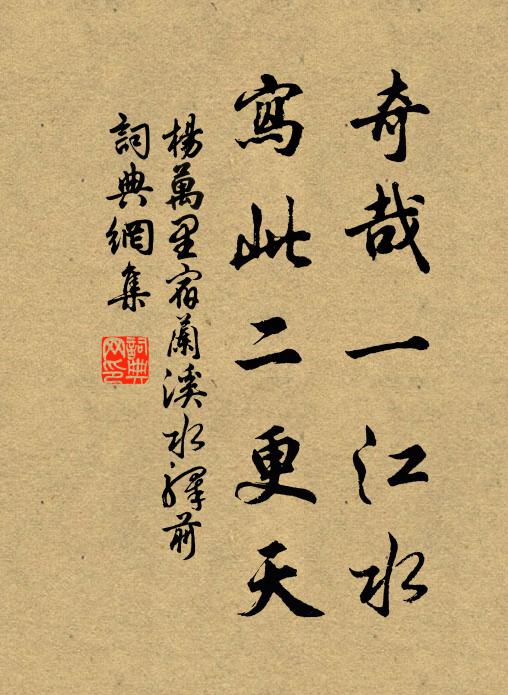 奇哉一江水
寫此二更天
楊萬里宿蘭溪水驛前
詞典網集
詞典网印